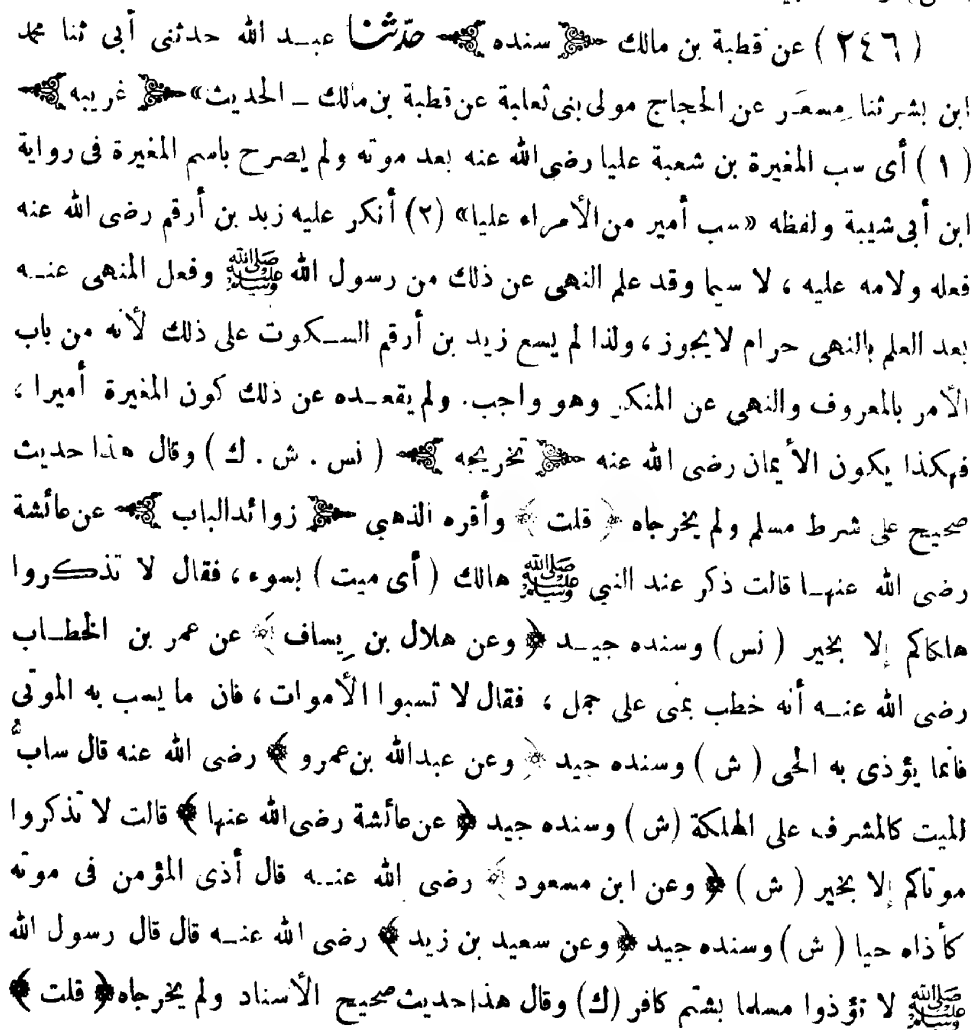 ( ٢٤٦ ) عن قطبة بن مالك ﴿ سنده ﴾ حدّثنا عبد الله حدثنى أبى ثنا محمد
ابن بشر ثنا مِسعَر عن الحجاج مولى بنى ثعلبة عن قطبة بن مالك ـ الحديث» ﴿ غريبه ﴾
( ١ ) أى سب المغيرة بن شعبة عليا رضى الله عنه بعد موته ولم يصرح باسم المغيرة فى رواية
ابن أبى شيبة ولفظه «سب أمير من الأمراء عليا» (٢) أنكر عليه زيد بن أرقم رضى الله عنه
فعله ولامه عليه ، لا سيما وقد علم النهى عن ذلك من رسول الله ﷺ وفعل المنهى عنه
بعد العلم بالنهى حرام لايجوز ، ولذا لم يسع زيد بن أرقم السكوت على ذلك لأنه من باب
الأمر بالمعروف والنهى عن المنكر وهو واجب. ولم يقعده عن ذلك كون المغيرة أميرا ،
فهكذا يكون الأيمان رضى الله عنه ﴿ تخريجه ﴾ ( نس . ش . ك ) وقال هذا حديث
صحيح على شرط مسلم ولم يخرجاه ﴿ قلت ﴾ وأقره الذهبى ﴿ زوائد الباب ﴾ عن عائشة
رضى الله عنها قالت ذكر عند النبي ﷺ هالك ( أى ميت ) بسوء ، فقال لا تذكروا
هلكاكم إلا بخير ( نس ) وسنده جيد ﴿ وعن هلال بن يِساف ﴾ عن عمر بن الخطاب
رضى الله عنه أنه خطب بمنى على جمل ، فقال لا تسبوا الأموات ، فان ما يسب به الموتى
فانما يؤذى به الحى ( ش ) وسنده جيد ﴿ وعن عبدالله بن عمرو ﴾ رضى الله عنه قال سابُّ
الميت كالمشرف على الهلكة (ش ) وسنده جيد ﴿ عن عائشة رضى الله عنها ﴾ قالت لا تذكروا
موتاكم إلا بخير ( ش ) ﴿ وعن ابن مسعود ﴾ رضى الله عنه قال أذى المؤمن فى موته
كأذاه حيا ( ش ) وسنده جيد ﴿ وعن سعيد بن زيد ﴾ رضى الله عنه قال قال رسول الله
ﷺ لا تؤذوا مسلما بشتم كافر (ك) وقال هذا حديث صحيح الأسناد ولم يخرجاه ﴿ قلت ﴾